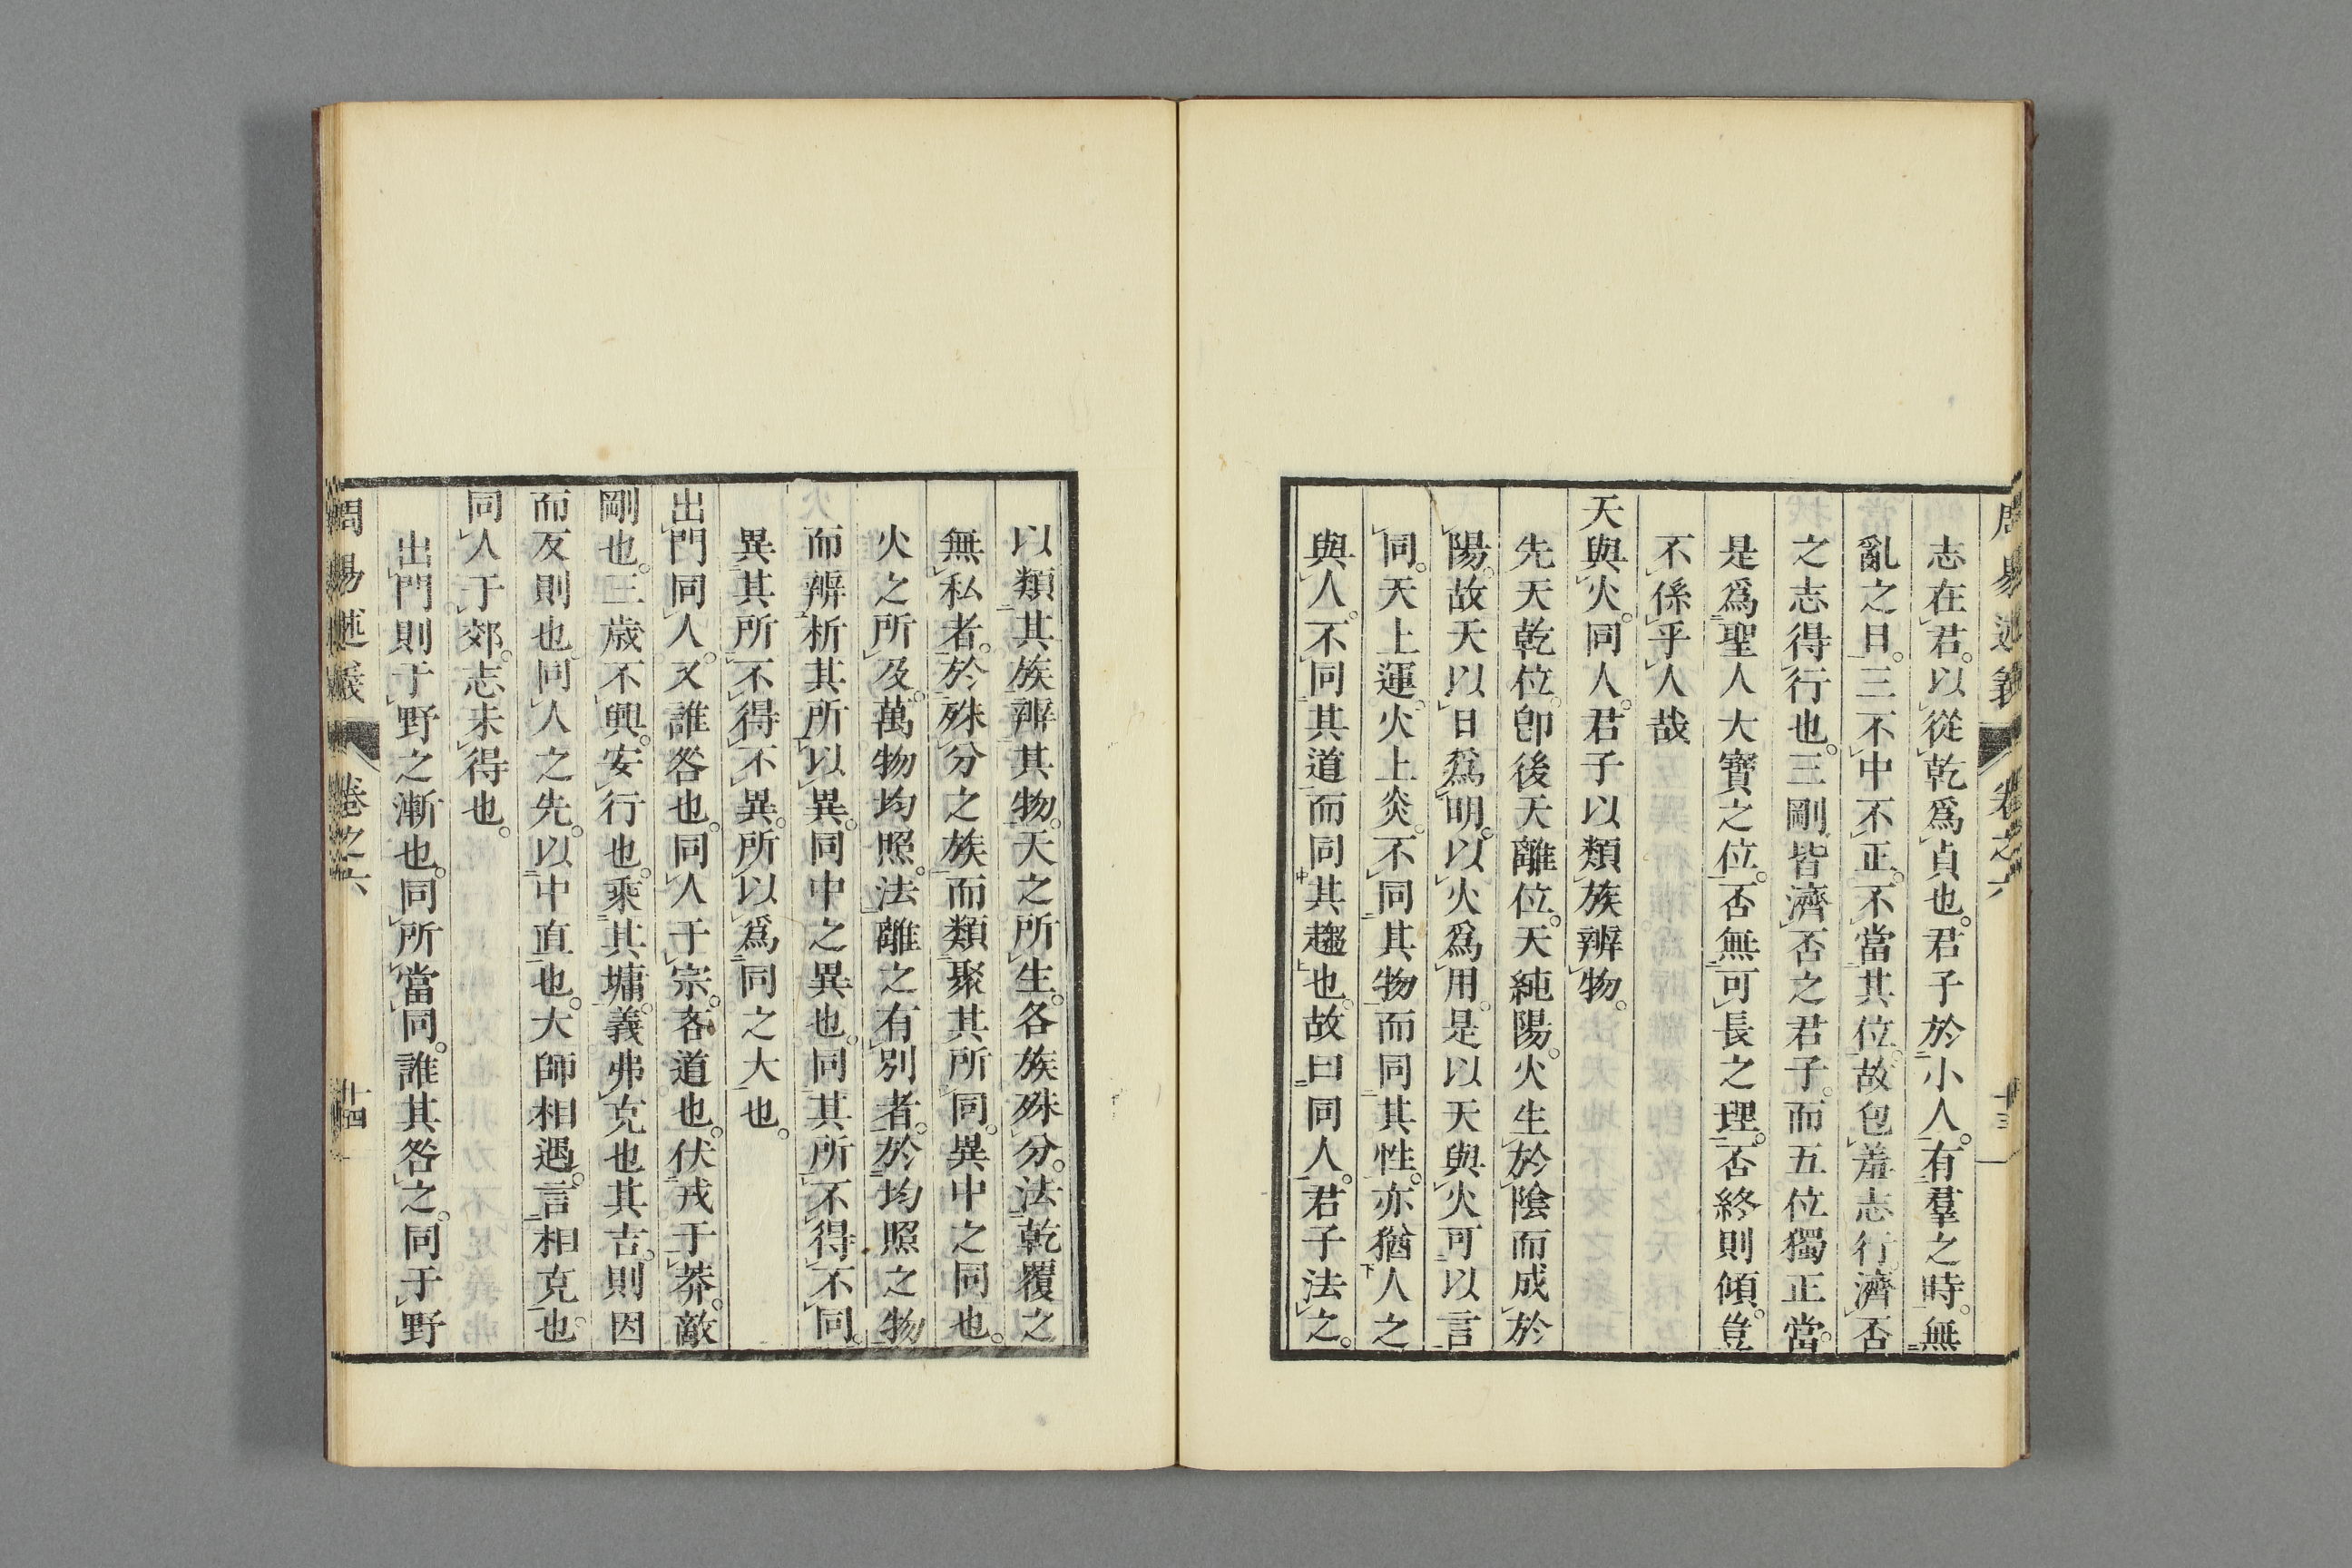 周易述義 卷之六 十三
志在君。以從乾爲貞也。君子於小人。有羣之時。無
亂之日。三不中不正。不當其位。故包羞志行。濟否
之志得行也。三剛皆濟否之君子。而五位獨正當。
是爲聖人大寶之位。否無可長之理。否終則傾。豈
不係乎人哉
天與火。同人。君子以類族辨物。
先天乾位。卽後天離位。天純陽。火生於陰而成於
陽。故天以日爲明。以火爲用。是以天與火可以言
同。天上運。火上炎。不同其物而同其性。亦猶人之
與人。不同其道而同其趨也。故曰同人。君子法之。
以類其族辨其物。天之所生。各族殊分。法乾覆之
無私者。於殊分之族而類聚其所同。異中之同也。
火之所及。萬物均照。法離之有別者。於均照之物
而辨析其所以異。同中之異也。同其所不得不同。
異其所不得不異。所以爲同之大也。
出門同人。又誰咎也。同人于宗。吝道也。伏戎于莽。敵
剛也。三歲不興。安行也。乘其墉。義弗克也其吉。則因
而反則也。同人之先。以中直也。大師相遇。言相克也。
同人于郊。志未得也。
出門則于野之漸也。同所當同。誰其咎之。同于野
周易述義 卷之六 十四